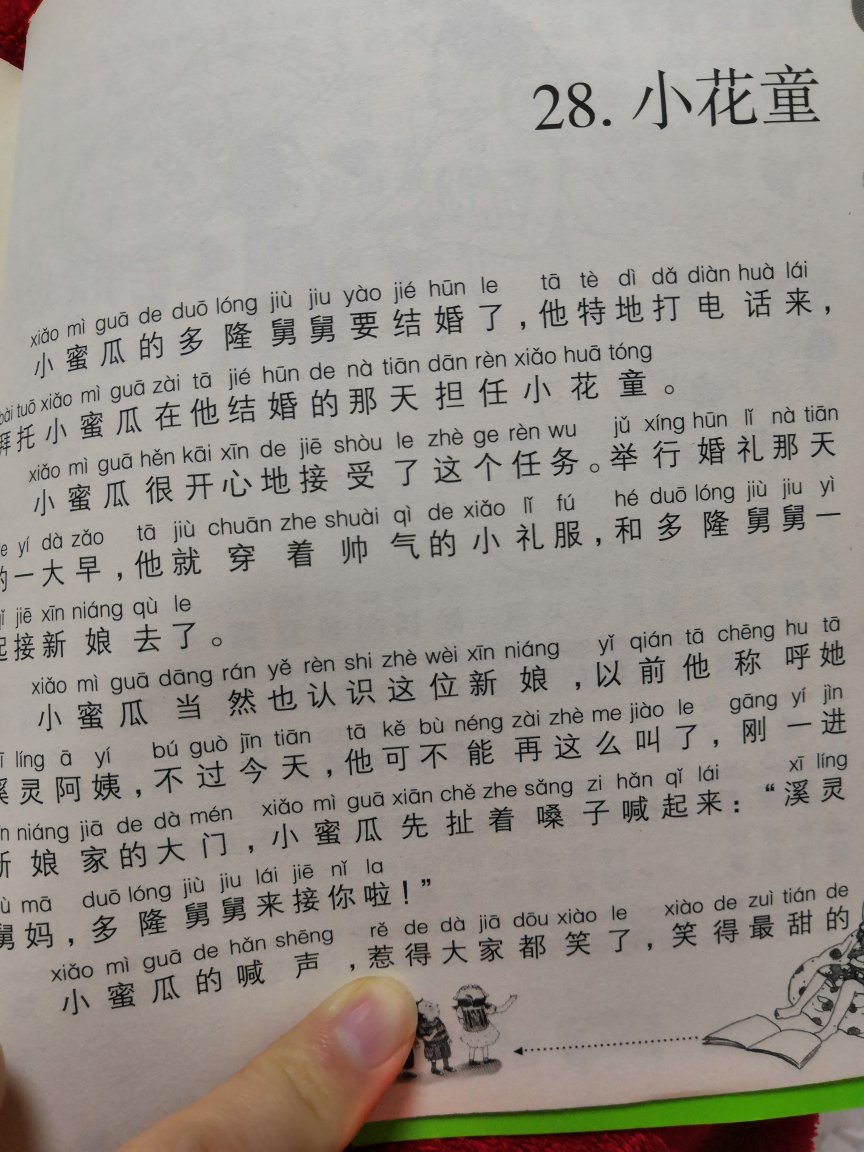 28. 小花童
xiǎo mì guā de duō lóng jiù jiu yào jié hūn le tā tè dì dǎ diàn huà lái
小蜜瓜的多隆舅舅要结婚了，他特地打电话来，
bài tuō xiǎo mì guā zài tā jié hūn de nà tiān dān rèn xiǎo huā tóng
拜托小蜜瓜在他结婚的那天担任小花童。
xiǎo mì guā hěn kāi xīn de jiē shòu le zhè ge rèn wu jǔ xíng hūn lǐ nà tiān
小蜜瓜很开心地接受了这个任务。举行婚礼那天
de yí dà zǎo tā jiù chuān zhe shuài qì de xiǎo lǐ fú hé duō lóng jiù jiu yì
的一大早，他就穿着帅气的小礼服，和多隆舅舅一
qǐ jiē xīn niáng qù le
起接新娘去了。
xiǎo mì guā dāng rán yě rèn shi zhè wèi xīn niáng yǐ qián tā chēng hu tā
小蜜瓜当然也认识这位新娘，以前他称呼她
xī líng ā yí bú guò jīn tiān tā kě bù néng zài zhè me jiào le gāng yí jìn
溪灵阿姨，不过今天，他可不能再这么叫了，刚一进
xīn niáng jiā de dà mén xiǎo mì guā xiān chě zhe sǎng zi hǎn qǐ lái xī líng
新娘家的大门，小蜜瓜先扯着嗓子喊起来：“溪灵
jiù mā duō lóng jiù jiu lái jiē nǐ la
舅妈，多隆舅舅来接你啦！”
xiǎo mì guā de hǎn shēng rě de dà jiā dōu xiào le xiào de zuì tián de
小蜜瓜的喊声，惹得大家都笑了，笑得最甜的